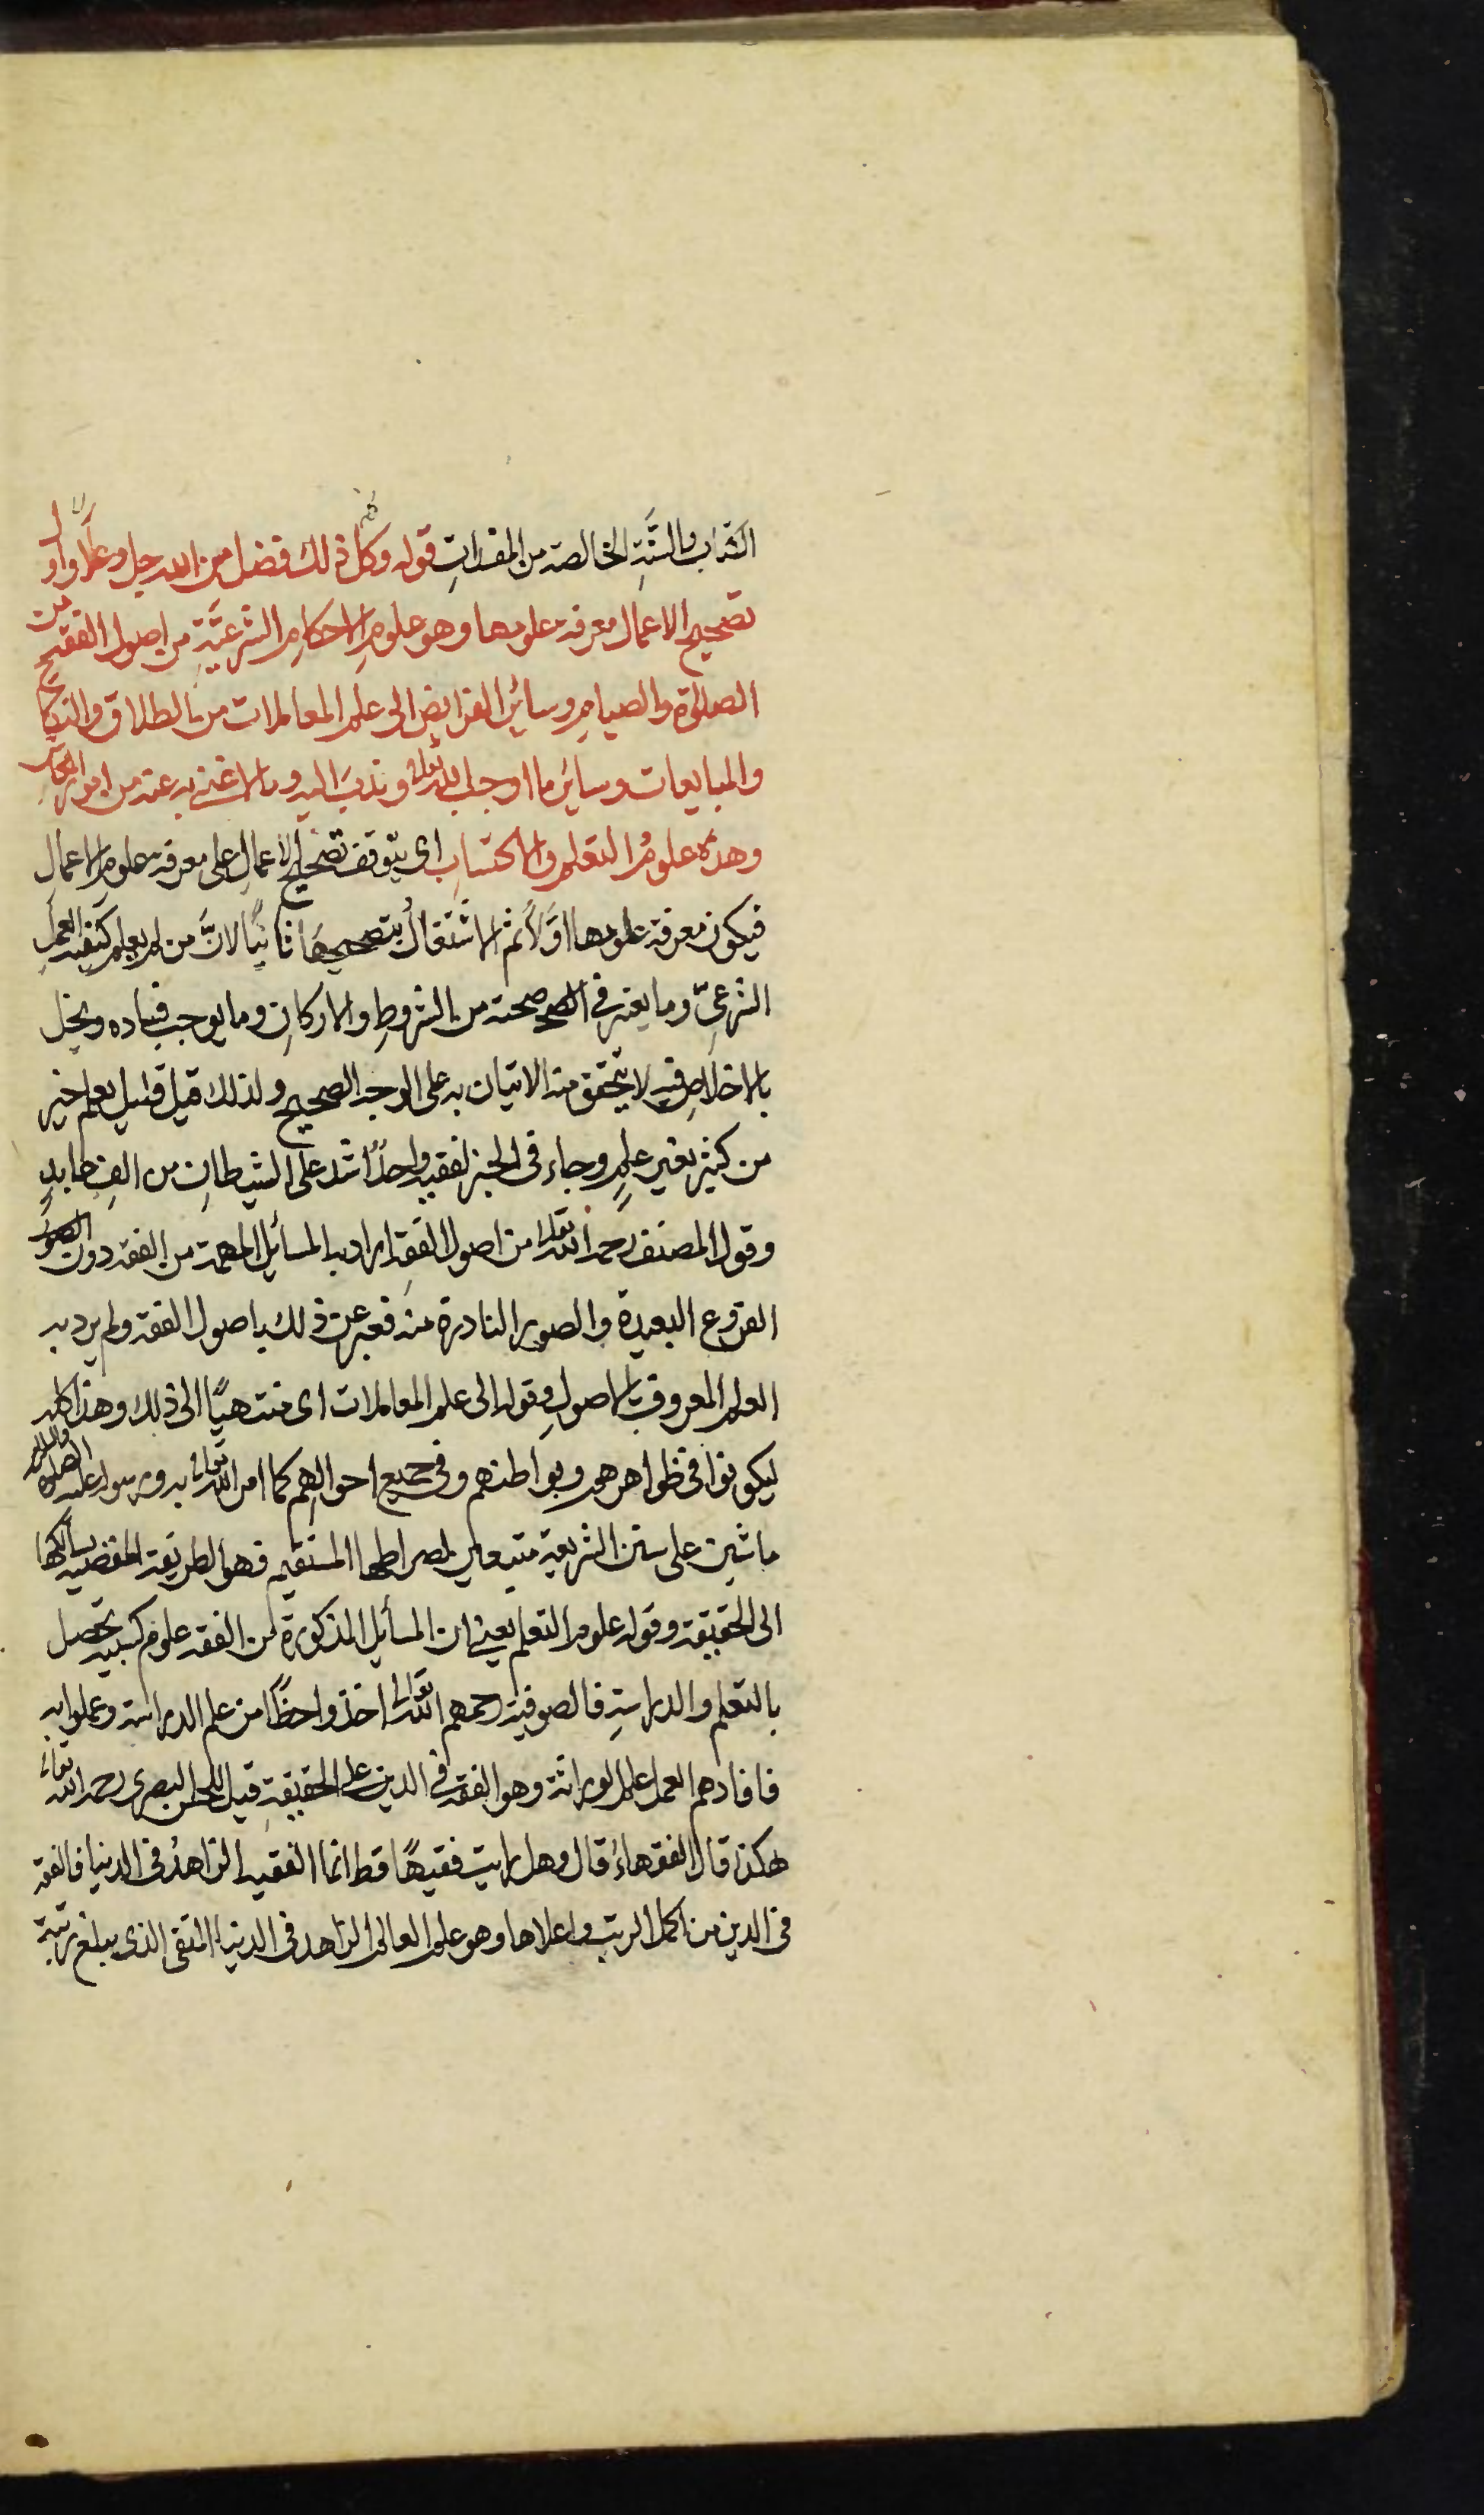 الكتاب والسُّنَّةِ الخالصة من المفسداتِ قوله وكل ذلك فضل من الله جل وعلا واول
تصحيح الاعمال معرفة علومها وهو علوم الاحكامِ الشرعيَّةِ من اصول الفقه من
الصلوٰة والصيامِ وسائر الفرايض الى علم المعاملات من الطلاق والنكاح
والمبايعات وسائر ما اوجب الله تعالى وندبَ اليه وما لا غنى به عنه من امور المعاش
وهذه علومُ التعلم والاكتسابِ اى يتوقف تصحيح الاعمالِ على معرفة علوم الاعمالِ
فيكون معرفة علومها اوّلاً ثم الاشتغالُ بتصحيحها ثانيًا لانَّ من لم يعلم كيفية العملِ
الشرعىّ وما يعتبر فى صحته من الشروطِ والاركانِ وما يوجب فساده ويخل
بالاخلاصِ فيه لا يتحقق منه الاتيان به على الوجه الصحيح ولذلك قيل قليل بعلم خير
من كثير بغير علمٍ وجاء فى الخبر لفقيه واحدٌ اشد على الشيطانِ من الفِ عابدٍ
وقول المصنف رحمه الله تعالى من اصول الفقهِ اراد به المسائل المهمة من الفقه دون الصور
الفروع البعيدة والصور النادرة منه فعبر عن ذلك باصول الفقه ولم يرد به
العلم المعروف بالاصولِ وقوله الى علم المعاملات اى منتهيًا الى ذلك وهذا كله
ليكونوا فى ظواهرهم وبواطنهم وفى جميع احوالِهم كما امر الله تعالى به ورسوله عليه الصلوة والسلام
ماشين على سنن الشريعة متبعين لصراطها المستقيم فهو الطريقة المفضية بسالكها
الى الحقيقة وقوله علوم التعلم يعنى ان المسائل المذكورة من الفقه علوم كسبية تحصل
بالتعلم والدراسةِ فالصوفية رحمهم الله تعالى اخذوا حظًّا من علم الدراسة وعملوا به
فافادهم العمل علم الوراثة وهو الفقه فى الدين على الحقيقةِ قيل للحسن البصرى رحمه الله تعالى
هكذا قال الفقهاءُ قال وهل رايت فقيهًا قط انما الفقيه الزاهدُ فى الدنيا فالفقه
فى الدين من اكمل الرتب واعلاها وهو علم العالم الزاهد فى الدنيا المتقى الذى يبلغ رتبة